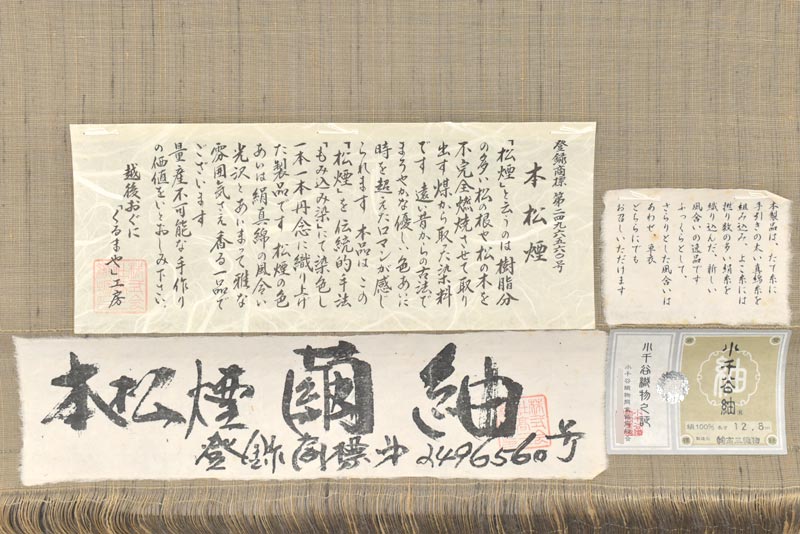 登録商標 第二四九六五六〇号
本松煙
「松煙」と云うのは樹脂分
の多い松の根や松の木を
不完全燃焼させて取り
出す煤から取った染料
です 遠い昔からの古法で
まろやかな優しい色あいに
時を超えたロマンが感じ
られます 本品は この
「松煙」を伝統的手法
「もみ込み染」にて染色し
一本一本丹念に織り上げ
た製品です 松煙の色
あいは 絹真綿の風合い
光沢とあいまって雅な
雰囲気さえ香る一品で
ございます
量産不可能な手作り
の価値をいとおしみ下さい。
越後おぐに
「くるまや」工房
本製品は、たて糸に
手引きの太い真綿糸を
組み込み、よこ糸には
撚り数の多い絹糸を
織り込んだ、新しい
風合いの逸品です
ふっくらとして、
さらりとした風合いは
あわせ、単衣
どちらにでも
お召しいただけます
本松煙 繭紬
登録商標 第2496560号
小千谷織物之証
小千谷紬
絹100% 長さ 12.8m